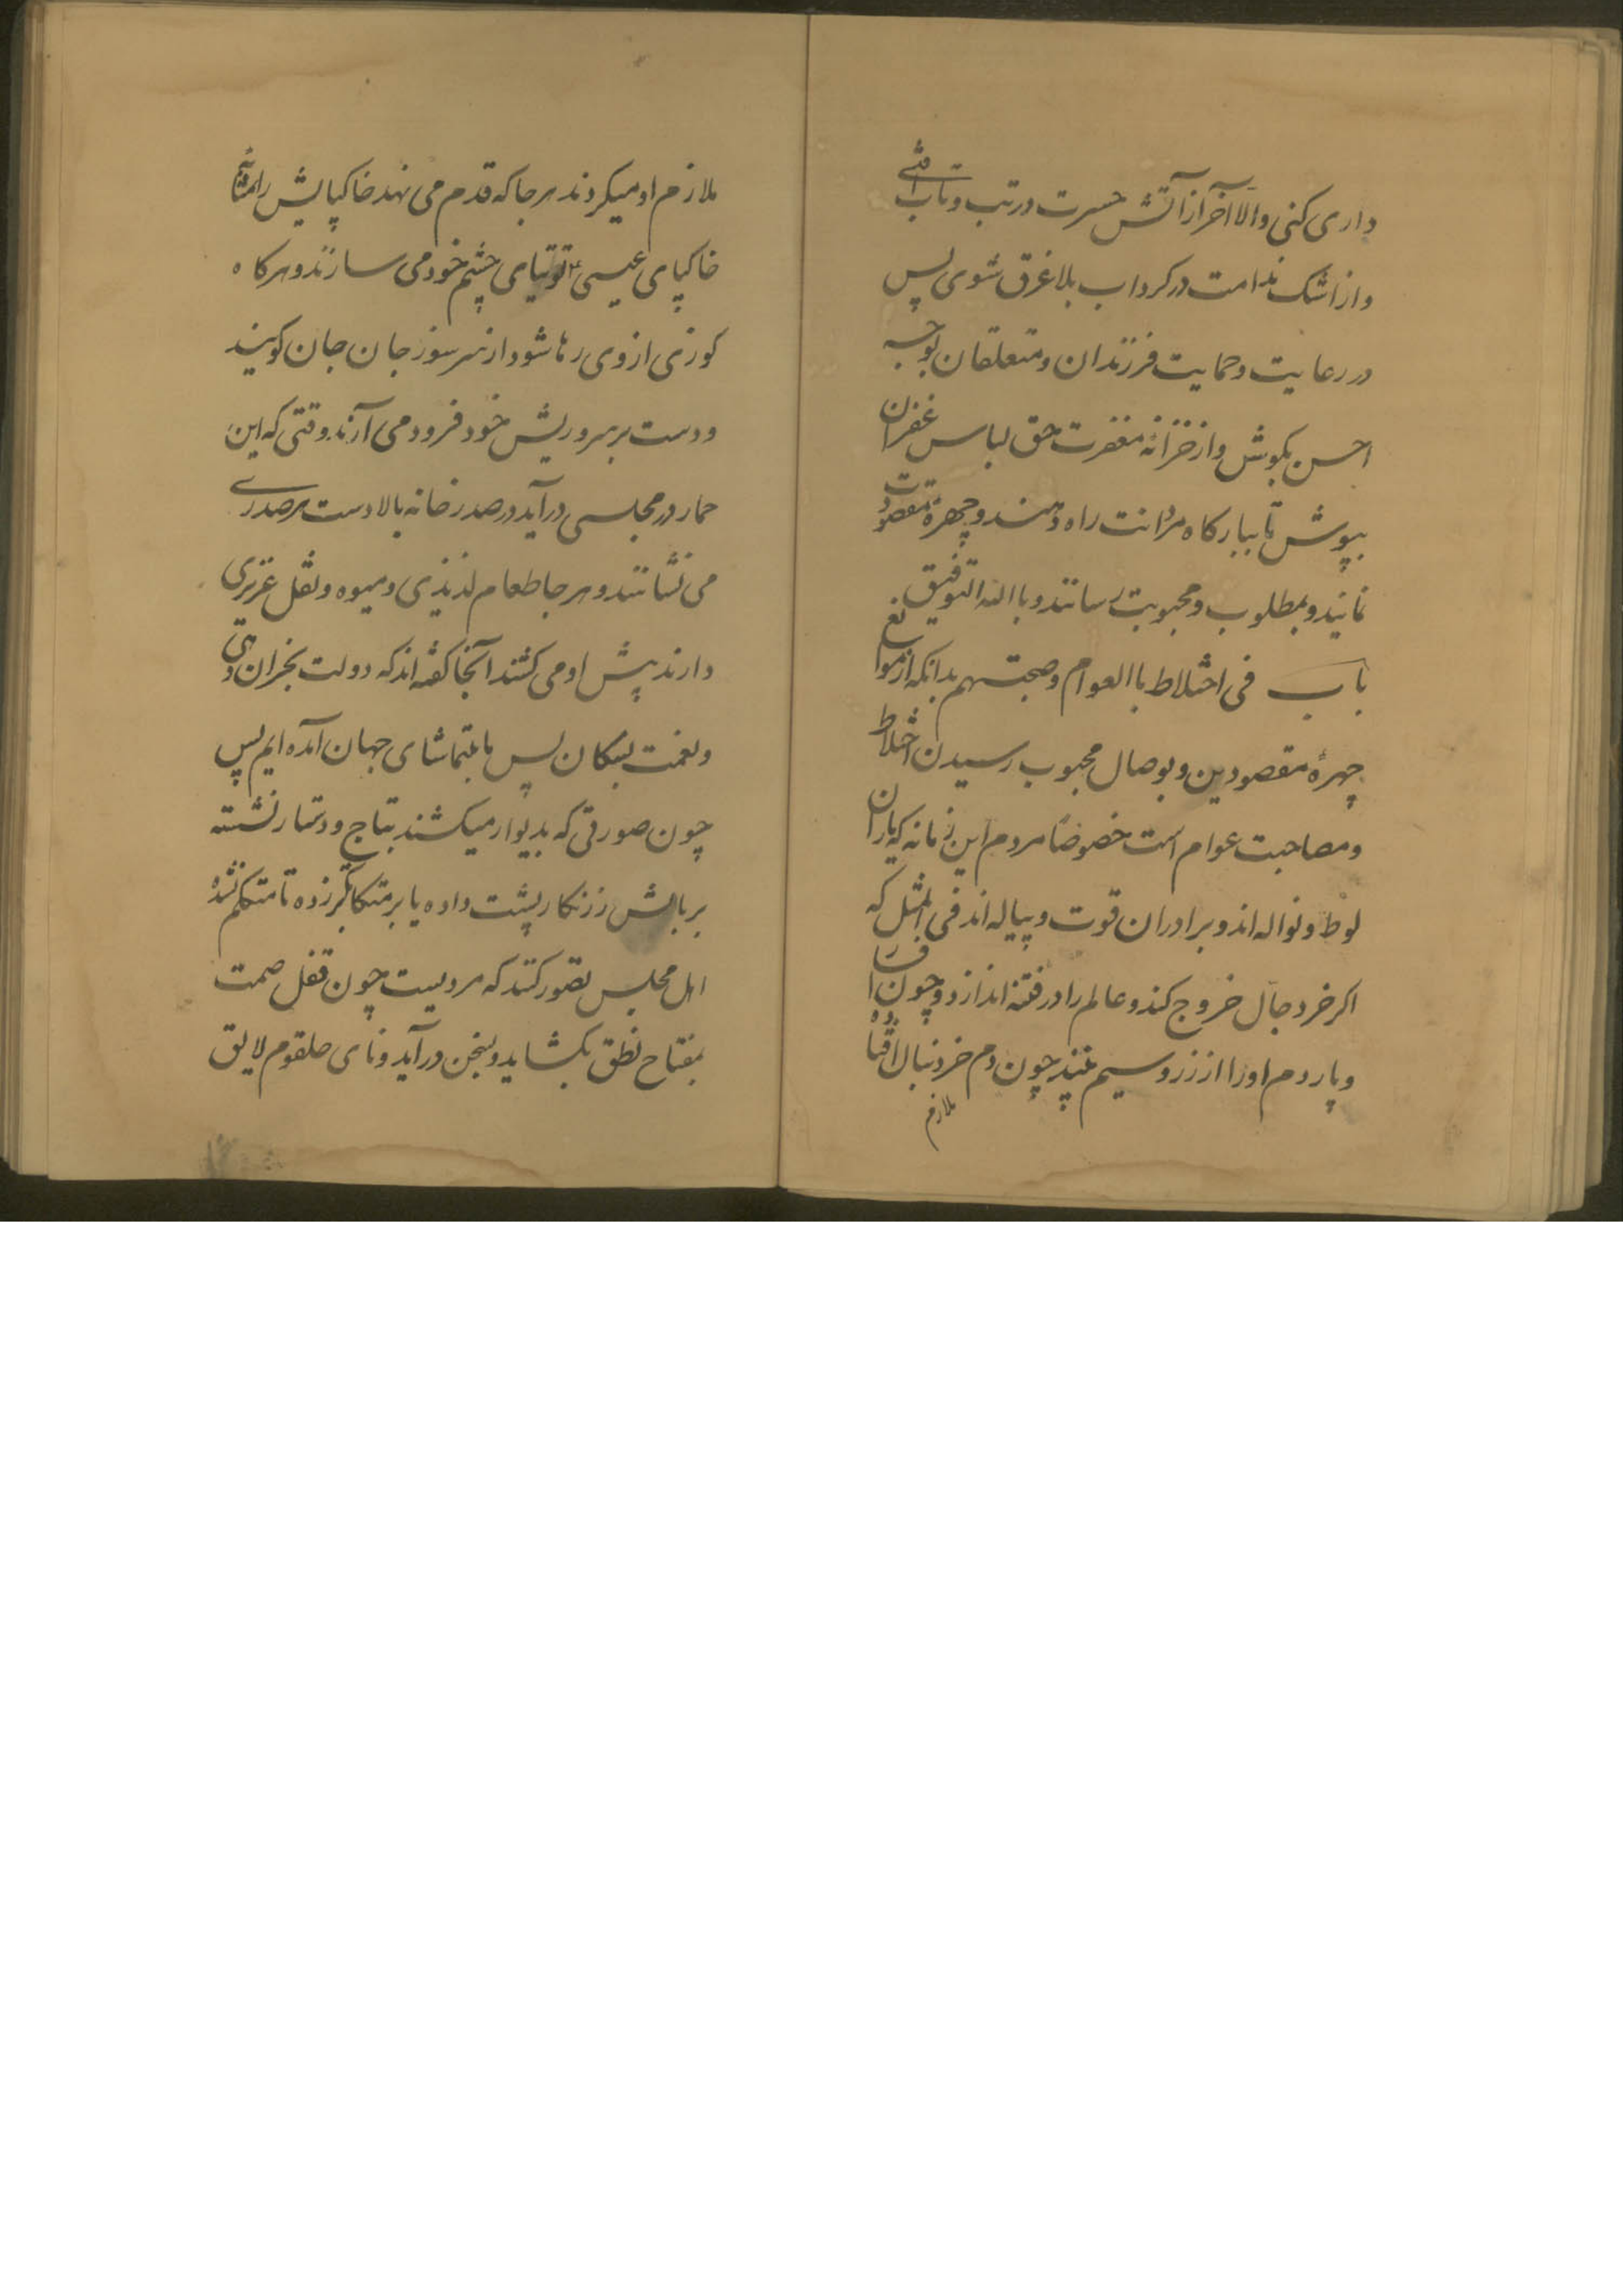 داری کنی والا آخر از آتش حسرت در تب و تاب افتی
و از اشک ندامت در کرداب بلا غرق شوی پس
در رعایت و حمایت فرزندان و متعلقان بوجه
احسن بکوش و از خزانه مغفرت حق لباس غفران
بپوش تا ببارکاه مردانت راه دهند و چهرهٔ مقصودت
نمایند و بمطلوب و محبوبت رسانند و باالله التوفیق
باب فی اختلاط باالعوام و صحبتهم بدانکه از موانع
چهرهٔ مقصود دیدن و بوصال محبوب رسیدن اختلاط
و مصاحبت عوام است خصوصا مردم این زمانه که یاران
لوط و نواله اند و براداران قوت و پیاله اند فی المثل که
اکر خر دجال خروج کند و عالم را در فتنه اندازد و چون
و پاردم او را از زر و سیم بینند چون دم خر دنبال افتاده
ملازم
ملازم او میکردند هر جا که قدم می نهد خاکپایش را بمثابه
خاکپای عیسی ع توتیای چشم خود می سازند و هر کاه
کوزی از وی رها شود از سر سوز جان جان کویند
و دست بر سر و ریش خود فرود می آرند وقتی که این
حمار در مجلسی در آید در صدر خانه بالا دست هر صدری
می نشانند و هر جا طعام لذیذی و میوه و نقل عزیزی
دارند پیش او می کشند آنجا کفته اند که دولت بخران دهی
و نعمت بسکان پس ما بتماشای جهان آمده ایم پس
چون صورتی که بدیوار میکشند بتاج و دستار نشسته
بر بالش زرنکار پشت داده یا بر متکا تکیه زده تا متکلم نشده
اهل مجلس تصور کنند که مردیست چون قفل صمت
بمفتاح نطق بکشاید و بسخن در آید و نای حلقوم لایق